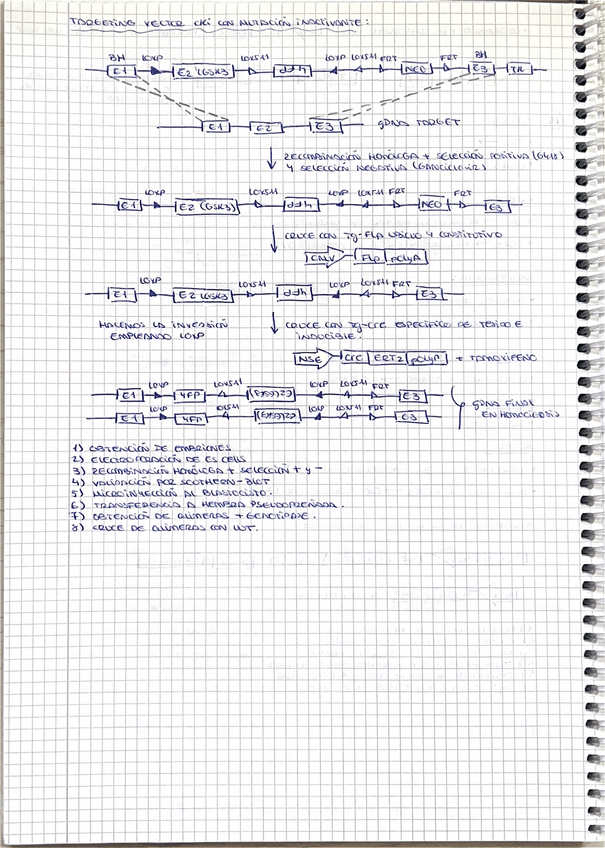 TARGETING VECTOR cKI CON MUTACIÓN INACTIVANTE:
BH LOXP LOX511 LOXP LOX511 FRT FRT BH
E1 E2 (GSK3) YFP NEO E3 TK
E1 E2 E3 gDNA TARGET
RECOMBINACIÓN HOMÓLOGA + SELECCIÓN POSITIVA (G418)
Y SELECCIÓN NEGATIVA (GANCICLOVIR)
LOXP LOX511 LOXP LOX511 FRT FRT
E1 E2 (GSK3) YFP NEO E3
CRUCE CON Tg-FLP UBICUO Y CONSTITUTIVO
CMV Flp polyA
LOXP LOX511 LOXP LOX511 FRT
E1 E2 (GSK3) YFP E3
HACEMOS LA INVERSIÓN
EMPLEANDO LOXP
CRUCE CON Tg-Cre ESPECÍFICO DE TEJIDO E
INDUCIBLE:
NSE Cre ERT2 polyA + TAMOXIFENO
LOXP LOX511 LOXP LOX511 FRT
E1 YFP E2(GSK3) E3
LOXP LOX511 LOXP LOX511 FRT
E1 YFP E2(GSK3) E3
gDNA FINAL
EN HOMOCIGOSIS
1) OBTENCIÓN DE EMBRIONES
2) ELECTROPORACIÓN DE ES CELLS
3) RECOMBINACIÓN HOMÓLOGA + SELECCIÓN + Y -
4) VALIDACIÓN POR SOUTHERN-BLOT
5) MICROINYECCIÓN AL BLASTOCISTO.
6) TRANSFERENCIA A HEMBRA PSEUDOPREÑADA.
7) OBTENCIÓN DE QUIMERAS + GENOTIPAJE.
8) CRUCE DE QUIMERAS CON WT.